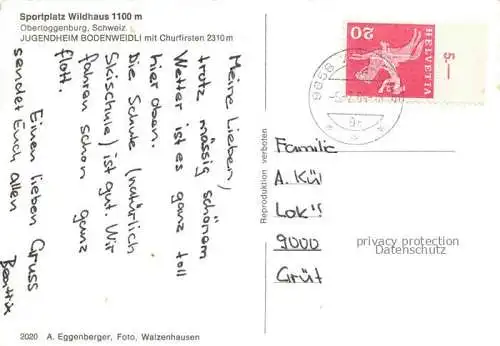 Sportplatz Wildhaus 1100 m
Obertoggenburg, Schweiz
JUGENDHEIM BODENWEIDLI mit Churfirsten 2310 m
Meine Lieben,
trotz mässig schönem
Wetter ist es ganz toll
hier oben.
Die Schule (natürlich
Skischule) ist gut. Wir
fahren schon ganz
flott.
Einen lieben Gruss
sendet Euch allen
2020 A. Eggenberger, Foto, Walzenhausen
Reproduktion verboten
HELVETIA
20
5
9658
Familie
A. Kül
Lok's
9000
Grüt
privacy protection
Datenschutz